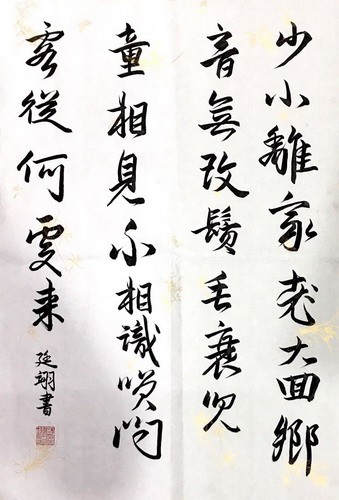 少小離家老大囬鄉
音無改鬢毛衰兒
童相見不相識咲問
客從何處来
廷翊書